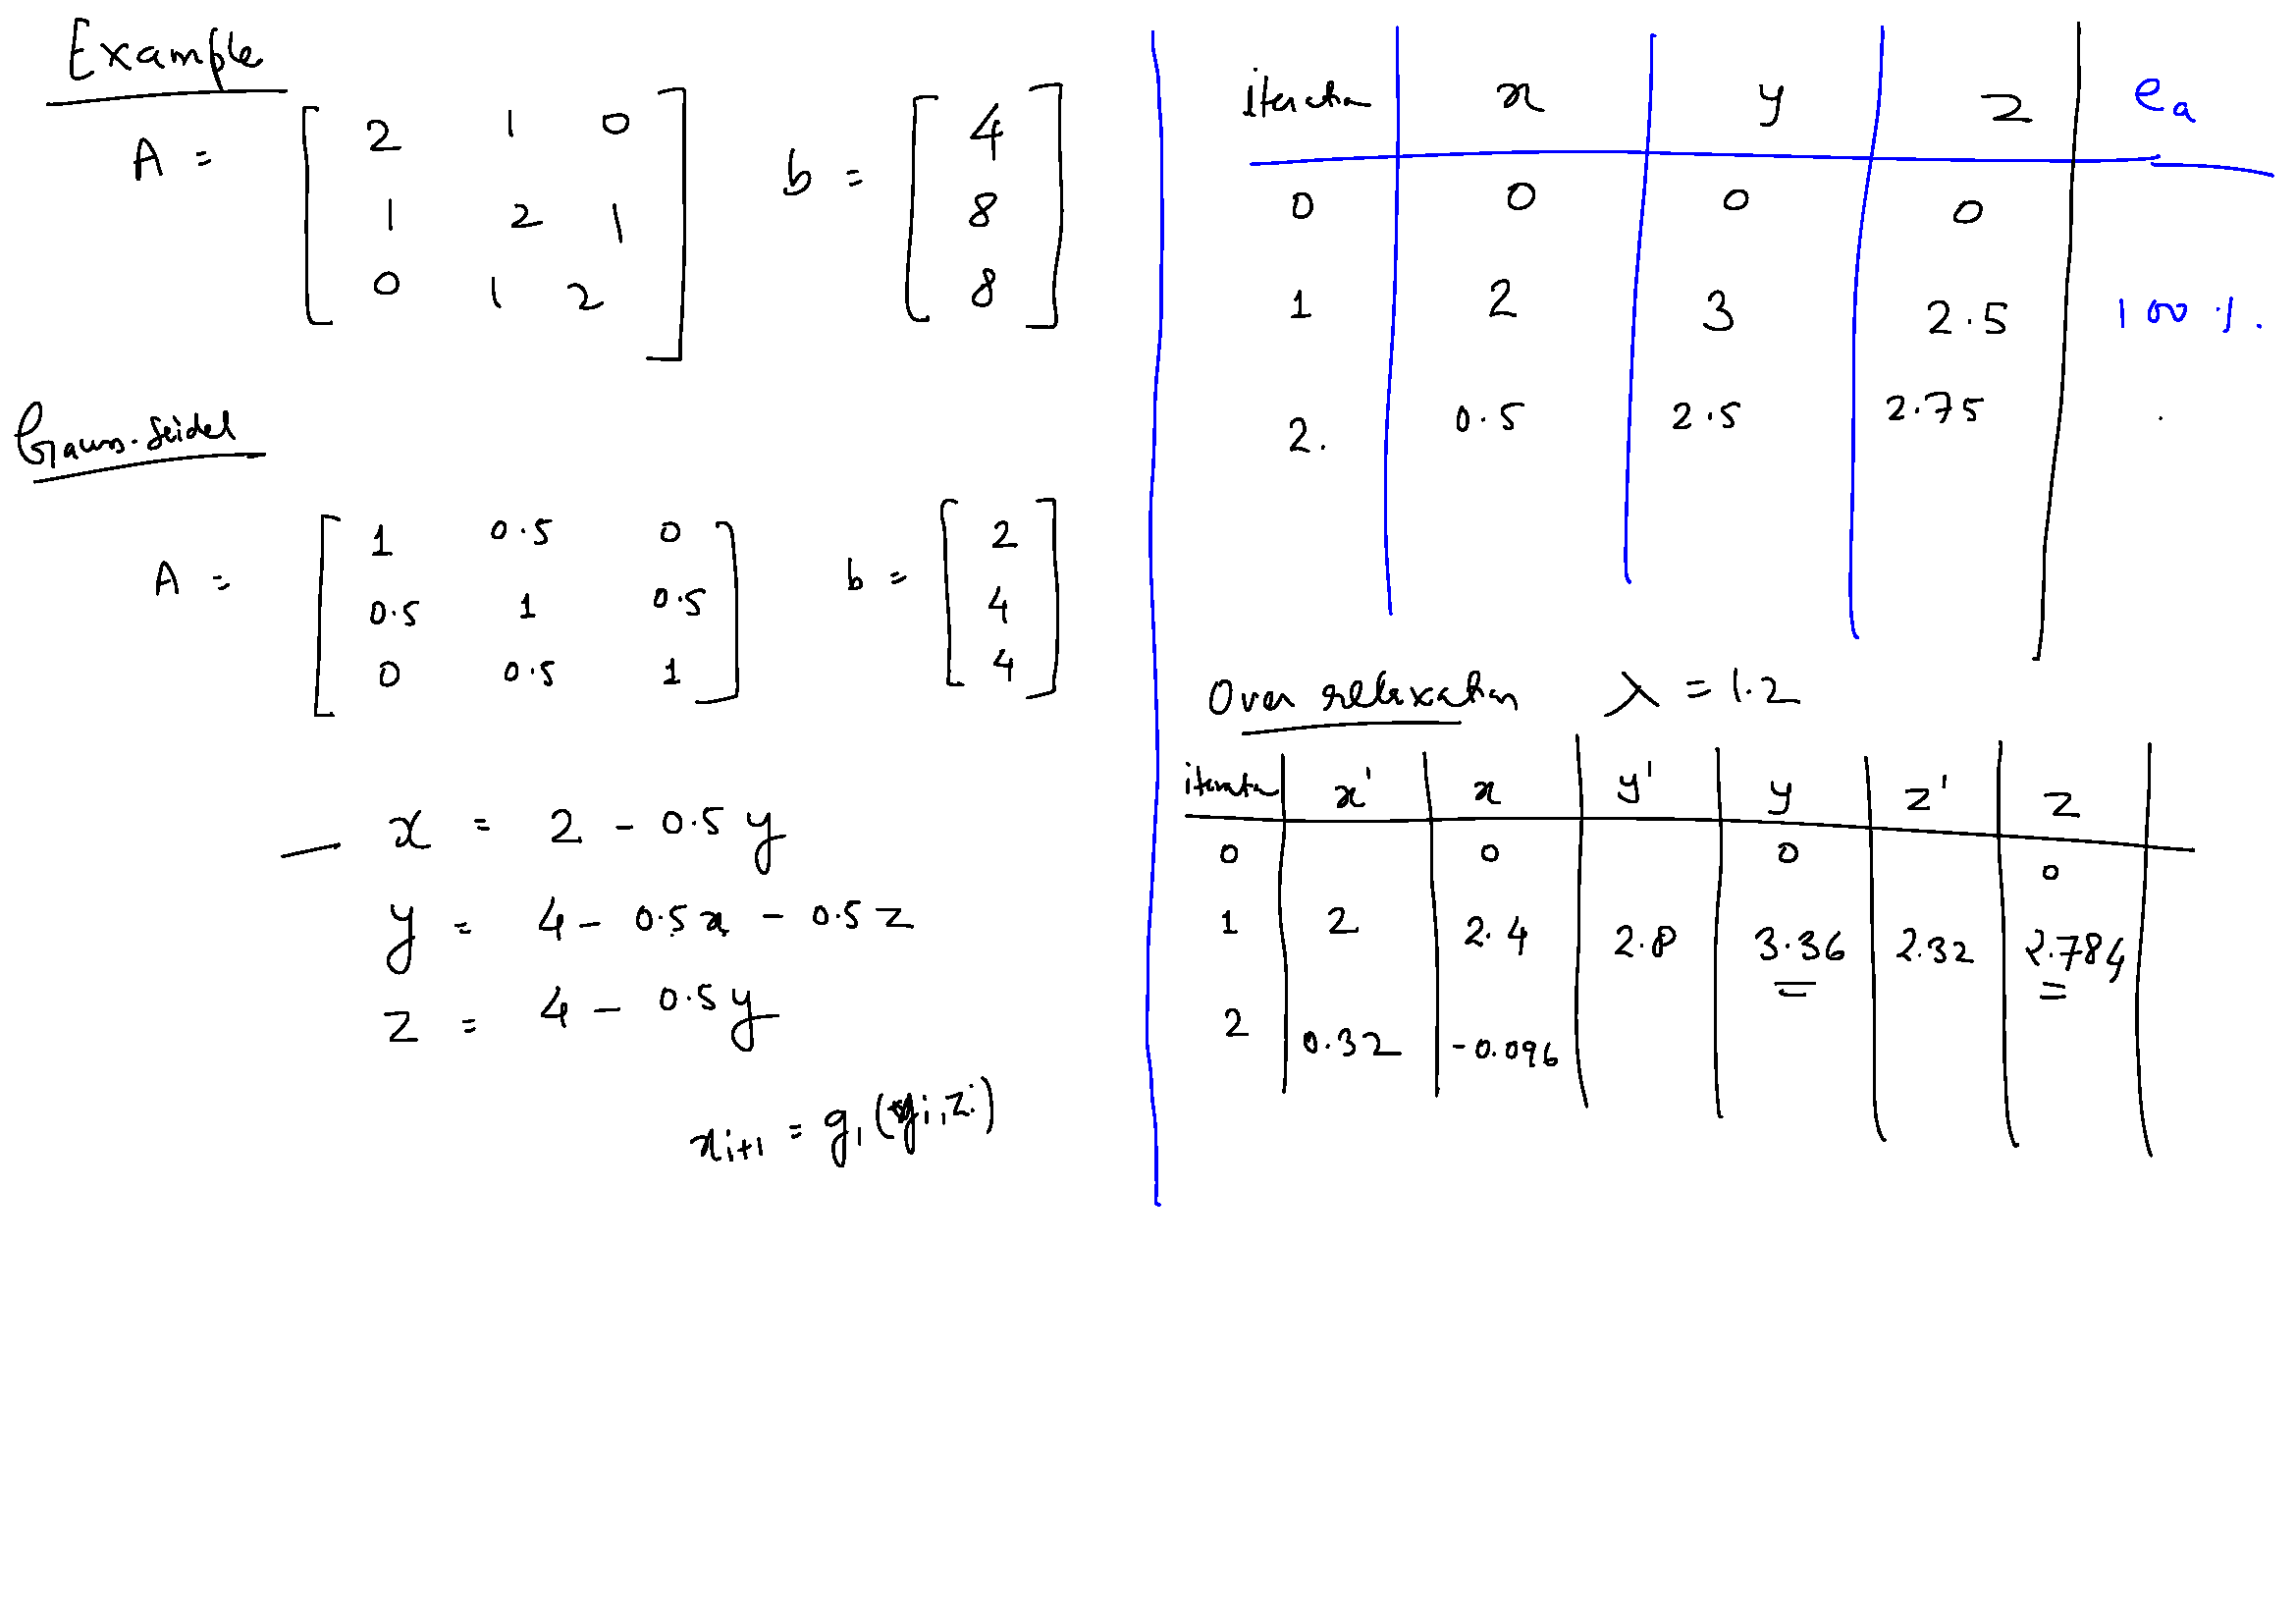 Example
A = [ 2 1 0
1 2 1
0 1 2 ]
b = [ 4
8
8 ]
Gauss-Seidel
A = [ 1 0.5 0
0.5 1 0.5
0 0.5 1 ]
b = [ 2
4
4 ]
— x = 2 - 0.5 y
y = 4 - 0.5 x - 0.5 z
z = 4 - 0.5 y
x i+1 = g1 (yi, zi)
iteration x y z ea
0 0 0 0
1 2 3 2.5 100 %.
2. 0.5 2.5 2.75 .
Over relaxation λ = 1.2
iteration x' x y' y z' z
0 0 0 0
1 2 2.4 2.8 3.36 2.32 2.784
2 0.32 -0.096